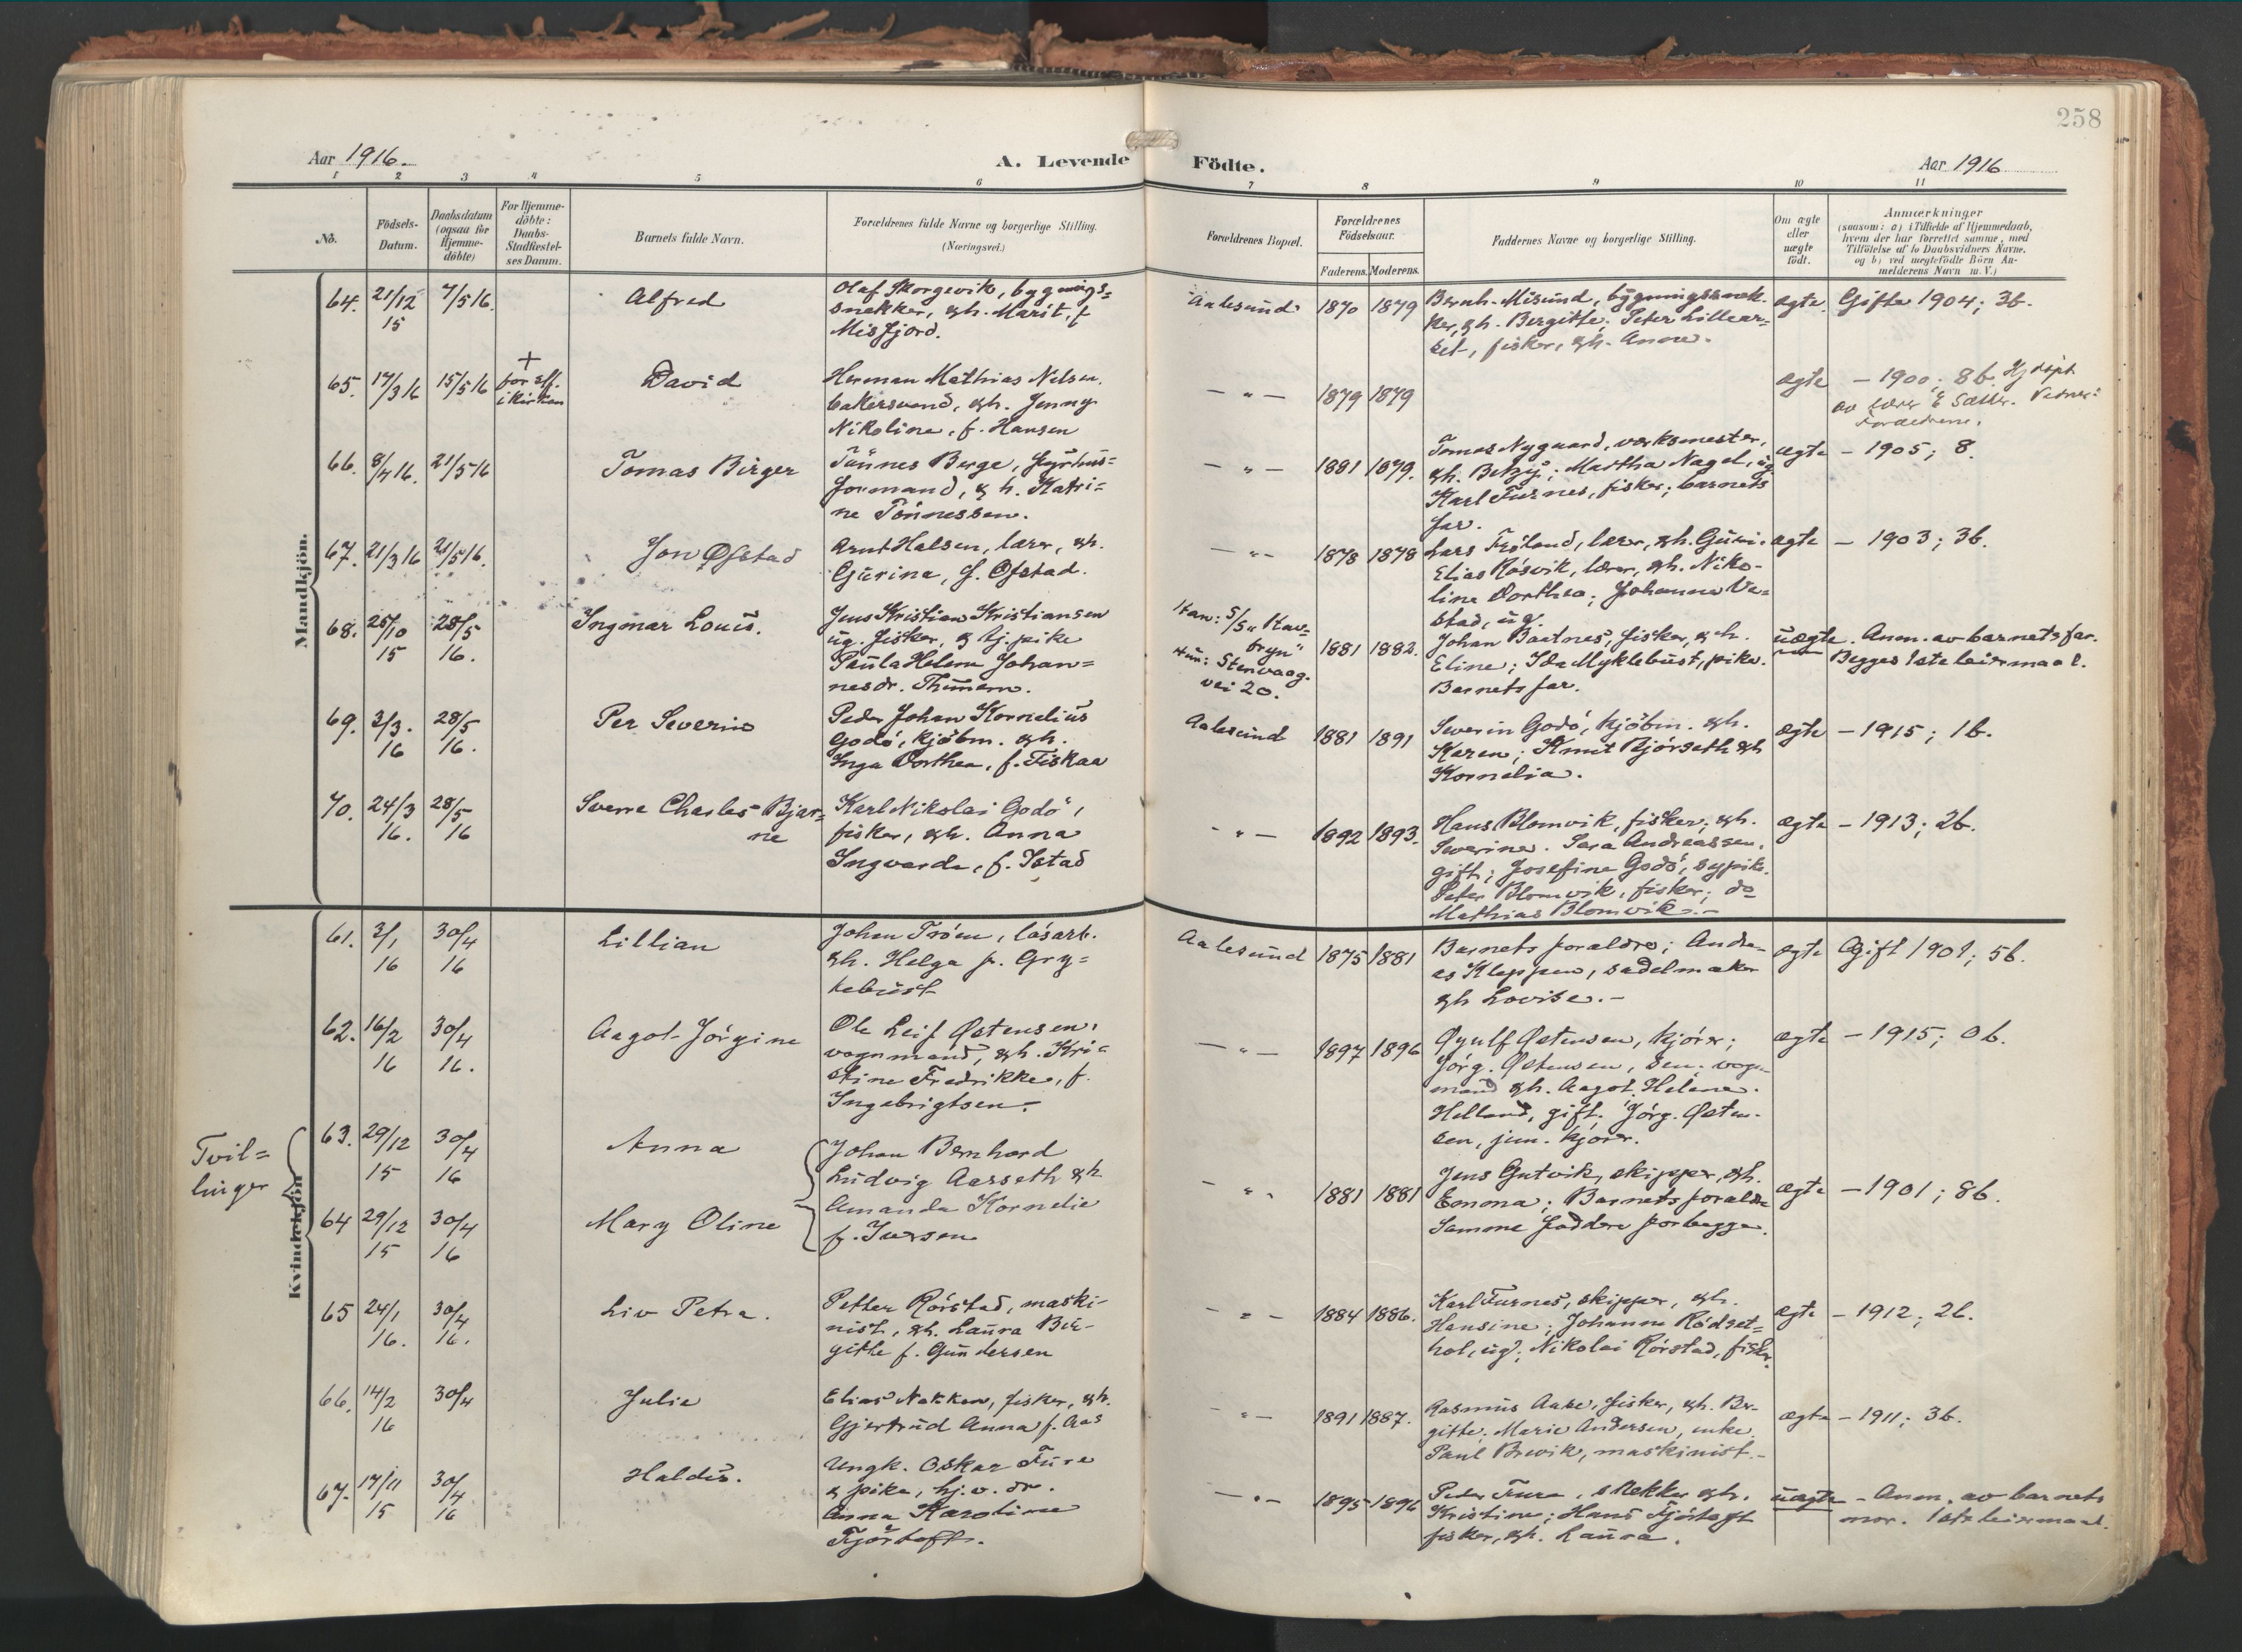 258
Aar 1916.
A. Levende Födte.
Aar 1916
1 2 3 4 5 6 7 8 9 10 11
No.
Födsels-Datum.
Daabsdatum (ogsaa for Hjemme-döbte)
For Hjemme-döbte: Daabs-Stadfæstel-ses Datum.
Barnets fulde Navn.
Forældrenes fulde Navne og borgerlige Stilling.
(Næringsvei.)
Forældrenes Bopæl.
Forældrenes Födselsaar.
Faderens. Moderens.
Faddernes Navne og borgerlige Stilling.
Om ægte eller uægte födt.
Anmærkninger
(saasom: a) i Tilfælde af Hjemmedaab,
hvem der har forrettet samme, med
Tilföielse af to Daabsvidners Navne,
og b) ved uægtefödte Börn An-
melderens Navn m. V.)
Mandkjön.
64. 21/12 15 7/5 16. Alfred
Olaf Skorgevik, bygnings=
snekker, & h. Marit, f.
Misfjord.
Aalesund 1870 1879
Bernh. Misund, bygningssnek-
ker, & h. Bergitte; Peter Lillear=
set, fisker, & h. Anne.
ægte. Gifte 1904; 3b.
65. 17/3 16 15/5 16 + i kirken David
Herman Mathias Nilsen,
bakersvend, & h. Jenny
Nikoline, f. Hansen
— „ — 1879 1879
ægte — 1900; 8b. Hj döpt
av lærer E Sæther. Vidner:
Forældrene.
66. 8/4 16. 21/5 16 Tomas Birger
Tönnes Berge, fyrhus=
formand, & h. Katri=
ne Tönnessen.
— „ — 1881 1879.
Tomas Nygaard, verksmester,
& h. Betzy; Martha Nagel, ug
Karl Furnes, fisker; barnets
far.
ægte — 1905; 8.
67. 21/3 16 21/5 16. Jon Øfstad
Arnt Halsen, lærer, & h.
Gurina, f. Øfstad.
— „ — 1878 1878
Lars Fröland, lærer, & h. Guri;
Elias Rösvik, lærer, & h. Niko-
line Dorthea; Johanna Ve=
stad, ug.
ægte — 1903; 3b.
68. 25/10 15 28/5 16. Ingmar Louis.
Jens Kristian Kristiansen
ug. fisker, & tj. pike
Paula Helene Johan=
nesdr. Thunem.
Han: S/S „Hav=
bryn"
Hun: Stenvaag.
vei 20.
1881 1882.
Johan Baatnes, fisker, & h.
Eline; Ida Myklebust, pike.
Barnets far.
uægte. Anm. av barnets far.
Begges 1ste leiermaal.
69. 3/3. 16 28/5 16. Per Severin
Peder Johan Kornelius
Godö, kjöbm. & h.
Inga Dorthea, f. Fiskaa
Aalesund 1881 1891
Severin Godö, kjöbm. & h.
Karen; Knut Bjørseth & h
Kornelia.
ægte — 1915; 1b.
70. 24/3 16. 28/5 16 Sverre Charles Bjar=
ne
Karl Nikolai Godö,
fisker, & h. Anna
Ingvarda, f. Istad
— „ — 1892 1893.
Hans Blomvik, fisker, & h.
Severine. Sara Andreassen,
gift; Josefine Godö, sypike.
Peter Blomvik, fisker; do
Mathias Blomvik. —
ægte — 1913; 2b.
Kvindekjön
61. 3/1 16 30/4 16 Lillian
Johan Tröen, lösarb.
& h. Helga f. Gry=
tebust
Aalesund 1875 1881
Barnets forældre; Andre-
as Kleppen, sadelmaker
& h Lovise. —
ægte Gift 1901; 5b.
62. 16/2 16 30/4 16. Aagot Jörgine
Ole Leif Østensen,
vognmand, & h. Kri=
stine Fredrikke, f.
Ingebrigtsen.
— „ — 1897 1896
Øyulf Østensen, kjörer;
Jörg. Østensen, sen. vogn-
mand & h. Aagot. Helene
Helland, gift. Jörg. Østen-
sen, jun. kjörer.
ægte — 1915; 0b.
Tvil=
linger
63. 29/12 15 30/4 16 Anna
64 29/12 15 30/4 16 Mary Oline
Johan Bernhard
Ludvig Aarseth & h.
Amanda Kornelie
f. Iversen
— „ — 1881 1881
Jens Gutvik, skipper, & h.
Emma; Barnets forældre
Samme faddere for begge.
ægte — 1901; 8b.
65 24/1 16. 30/4 16. Liv Petra.
Petter Rörstad, maski-
nist, & h. Laura Bir-
gitte f. Gundersen
— „ — 1884 1886.
Karl Furnes, skipper, & h.
Hansine; Johanne Rödset=
hol, ug; Nikolai Rörstad, fisker.
ægte — 1912; 2b.
66. 14/2 16 30/4 Julie
Elias Nakken, fisker, & h.
Gjertrud Anna f. Aas
— „ — 1891 1887.
Rasmus Aase, fisker, & h. Ber-
gitte; Marie Andersen, enke.
Paul Brevik, maskinist. —
ægte — 1911; 3b.
67. 17/11 15 30/4 16 Haldis.
Ungk. Oskar Fure
& pike, hj. v. dr.
Anna Karoline
Fjörtoft.
— „ — 1895 1896
Peder Fure, snekker & h.
Kristine; Hans Fjörtoft
fisker, & h. Laura.
uægte — Anm. av barnets
mor. 1ste leiermaal.